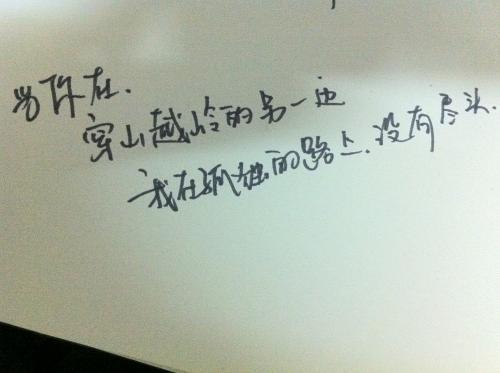 当你在.
穿山越岭的另一边
我在孤独的路上.没有尽头.